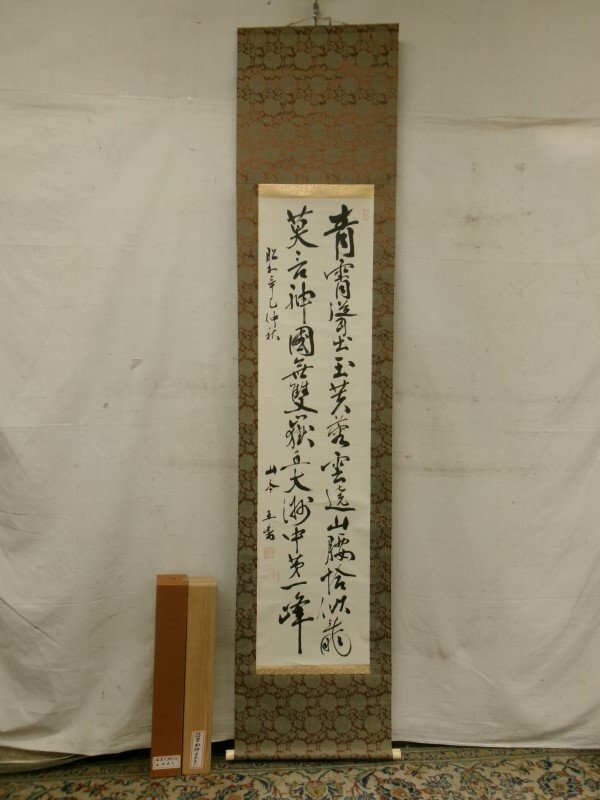 青霄湧出玉芙蓉雲遶山腰恰似龍
莫言神國無雙嶽五大洲中第一峰
昭和辛巳仲秋
山本